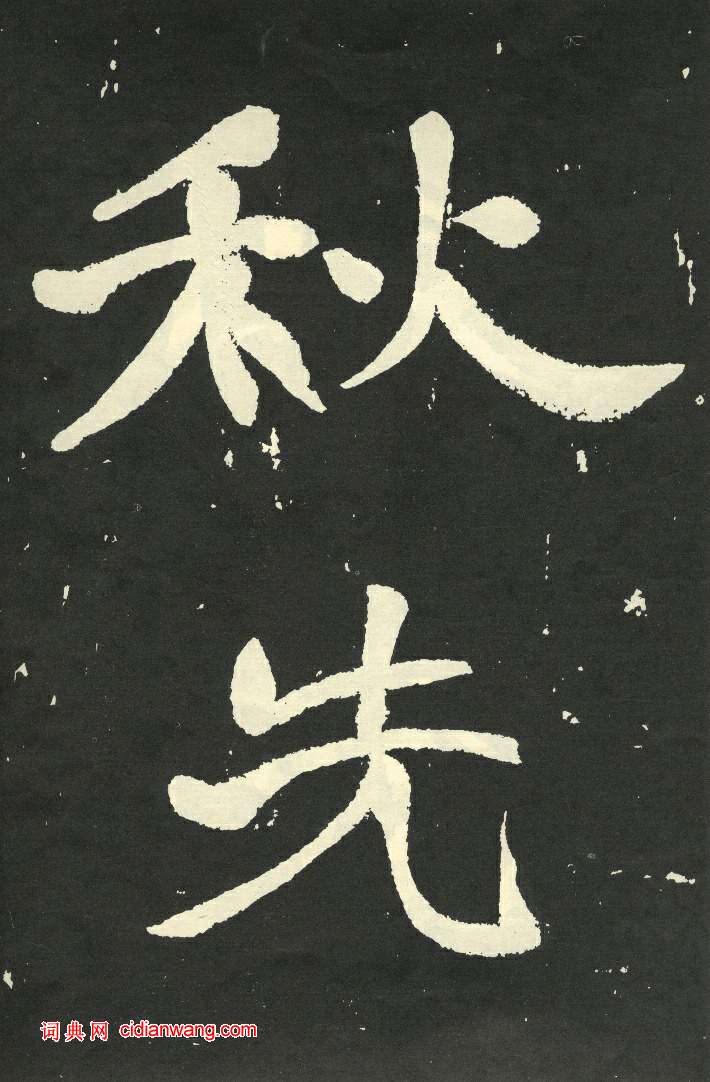 秋
先
词典网 cidianwang.com